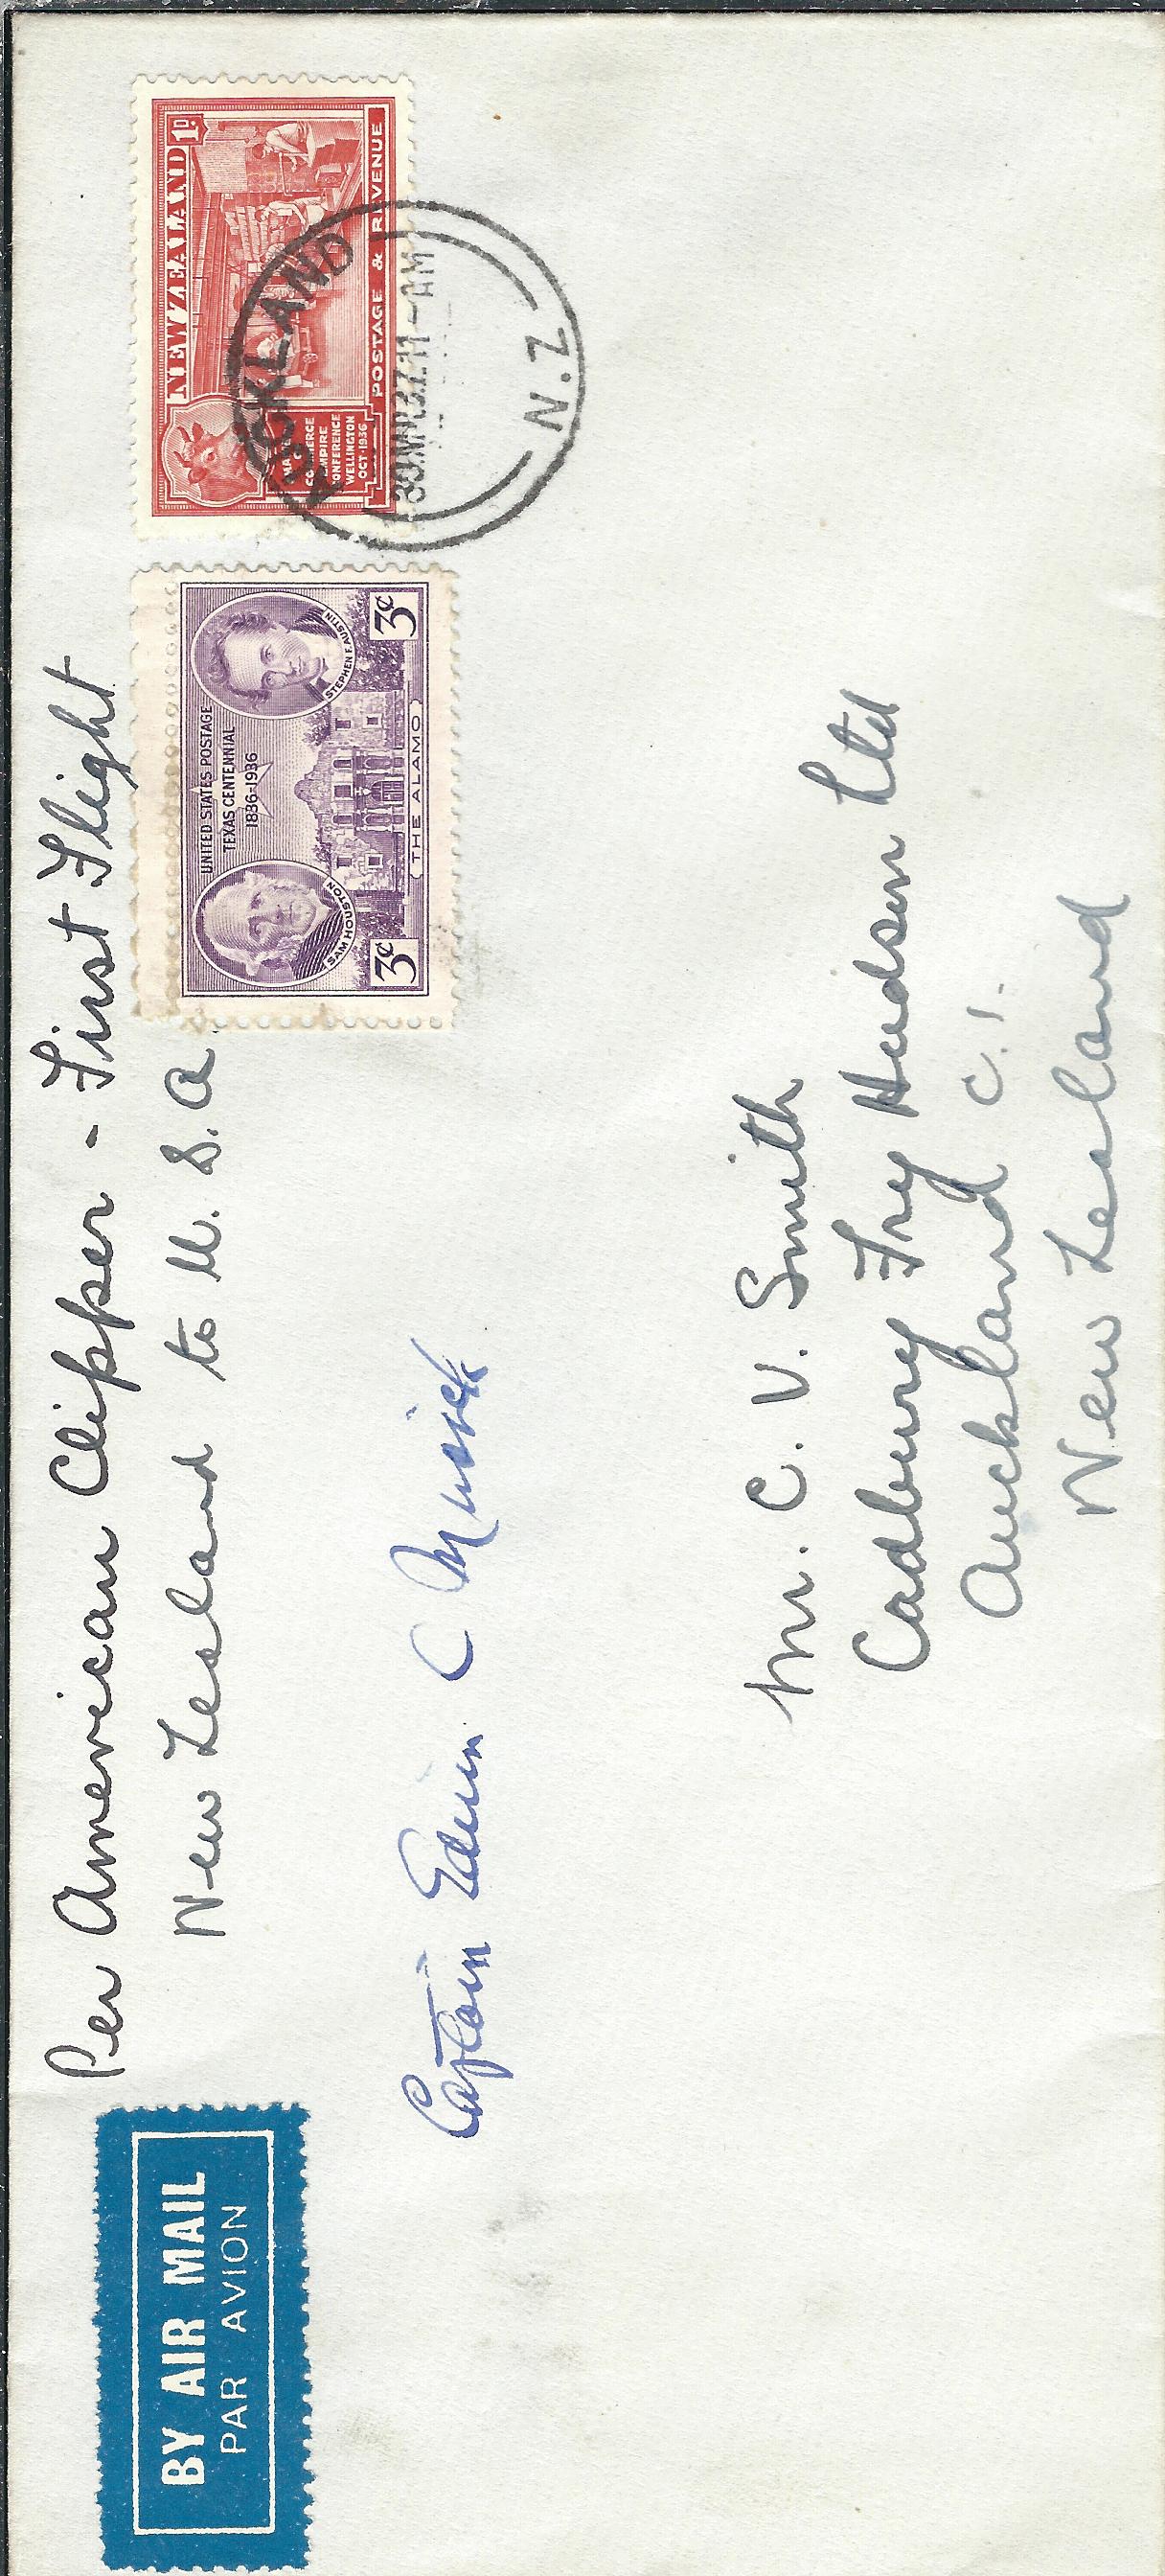 BY AIR MAIL
PAR AVION
Per American Clipper - First Flight
New Zealand to U.S.A.
Captain Edwin C Musick
Mr. C. V. Smith
Cadbury Fry Hudson Ltd
Auckland C.1.
New Zealand
UNITED STATES POSTAGE
TEXAS CENTENNIAL
1836-1936
SAM HOUSTON
STEPHEN F. AUSTIN
3¢
3¢
THE ALAMO
NEW ZEALAND 1D
COMMERCE
EMPIRE
CONFERENCE
WELLINGTON
OCT·1936
POSTAGE & REVENUE
AUCKLAND
11-AM
N.Z